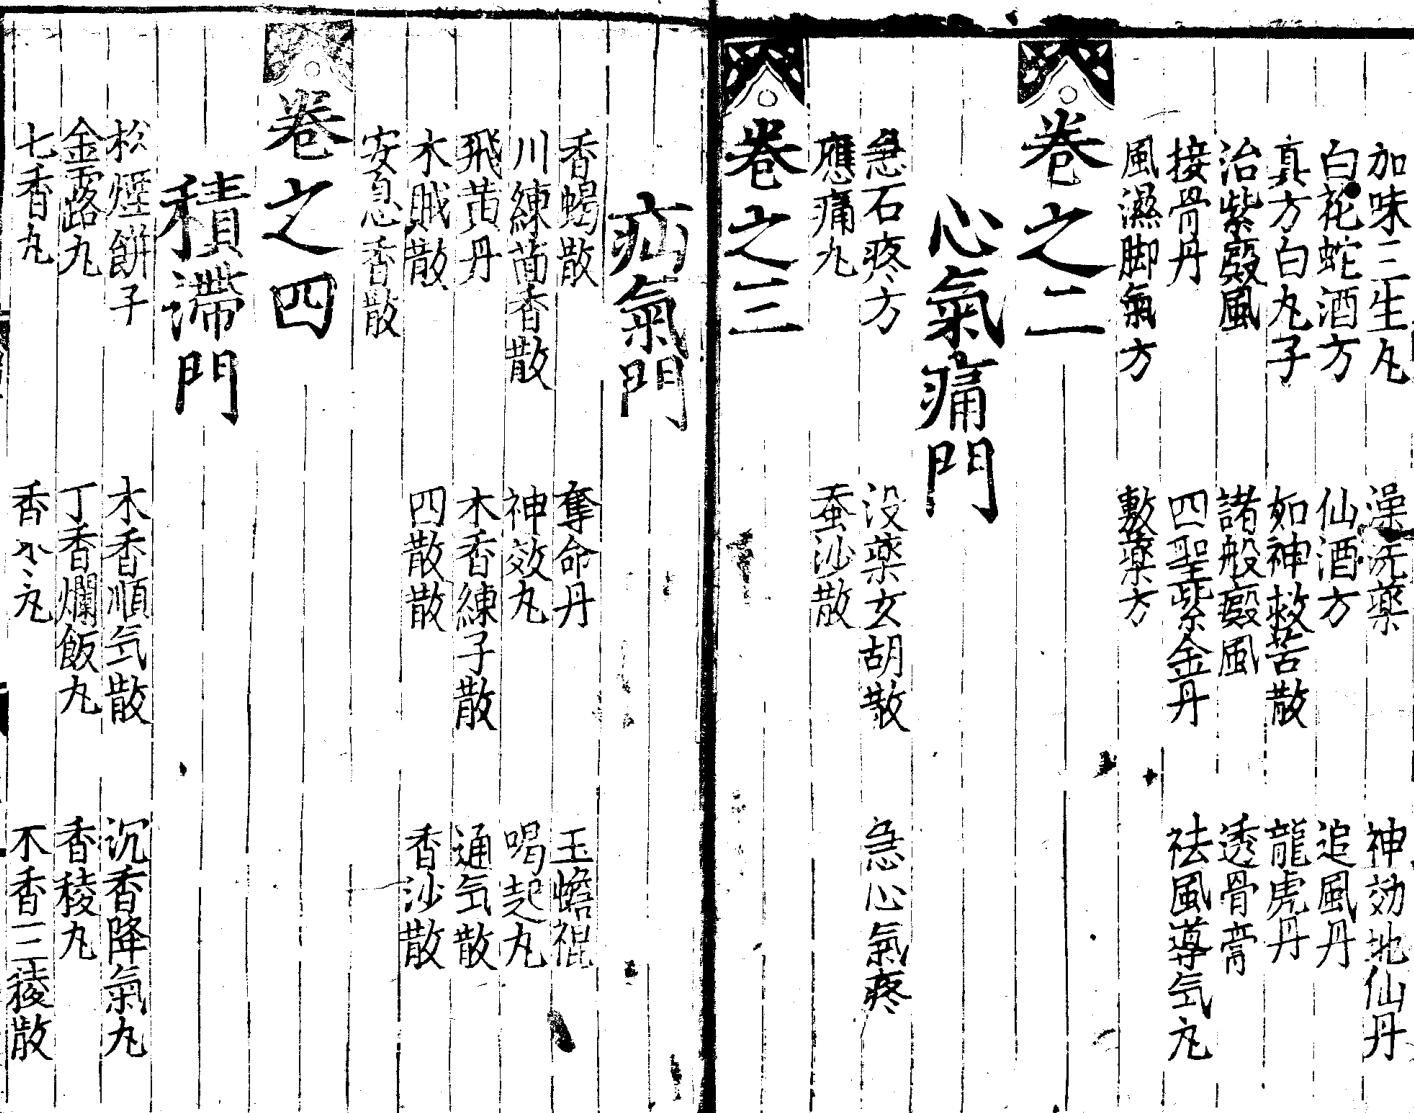 加味三生丸　澡洗藥　神効地仙丹
白花蛇酒方　仙酒方　追風丹
真方白丸子　如神救苦散　龍虎丹
治紫癜風　諸般癜風　透骨膏
接骨丹　四聖紫金丹　祛風導気丸
風濕脚氣方　敷藥方
卷之二
心氣痛門
急石疼方　没藥玄胡散　急心氣疼
應痛丸　蚕沙散
卷之三
疝氣門
香蝎散　奪命丹　玉蟾裩
川練茴香散　神效丸　喝起丸
飛黄丹　木香練子散　通気散
木賊散　四散散　香沙散
安息香散
卷之四
積滯門
松煙餅子　木香順気散　沉香降氣丸
金露丸　丁香爛飯丸　香稜丸
七香丸　香 丸　木香三稜散